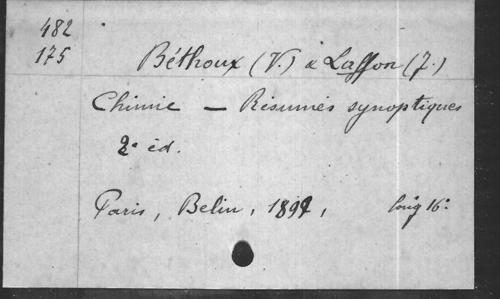 482
175
Béthoux (V.) & Laffon (J.)
Chimie — Résumés synoptiques
2e éd.
Paris, Belin, 1892, long 16°